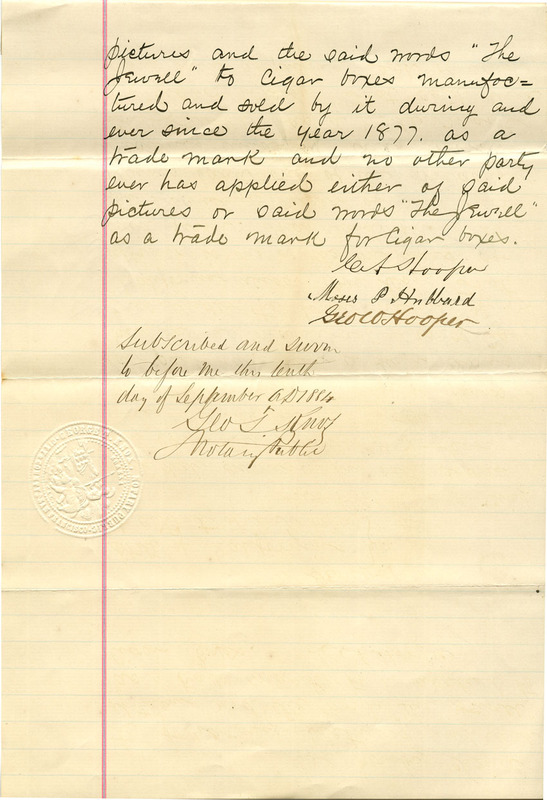 pictures and the said words "The
Jewell" to Cigar boxes manufac=
tured and sold by it during and
ever since the year 1877. as a
trade mark and no other party
ever has applied either of said
pictures or said words "The Jewell"
as a trade mark for Cigar boxes.
C A Hooper
Moses P Hubbard
Geo W Hooper
Subscribed and sworn
to before me this tenth
day of September AD 1884
Geo T Knox
Notary Public